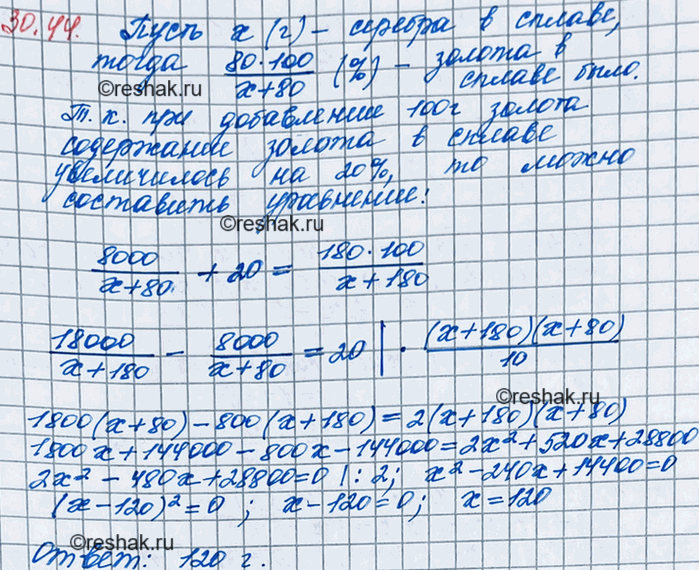 30.44. Пусть x (г) – серебра в сплаве,
тогда 80·100/(x+80) (%) – золота в сплаве было.
©reshak.ru
Т.к. при добавление 100г золота
содержание золота в сплаве
увеличилось на 20%, то можно
составить уравнение:
©reshak.ru
8000/(x+80) + 20 = 180·100/(x+180)
18000/(x+180) - 8000/(x+80) = 20 | · (x+180)(x+80)/10
©reshak.ru
1800(x+80)-800(x+180)=2(x+180)(x+80)
1800x+144000-800x-144000=2x²+520x+28800
2x²-480x+28800=0 |:2; x²-240x+14400=0
(x-120)²=0; x-120=0; x=120
©reshak.ru
Ответ: 120 г.